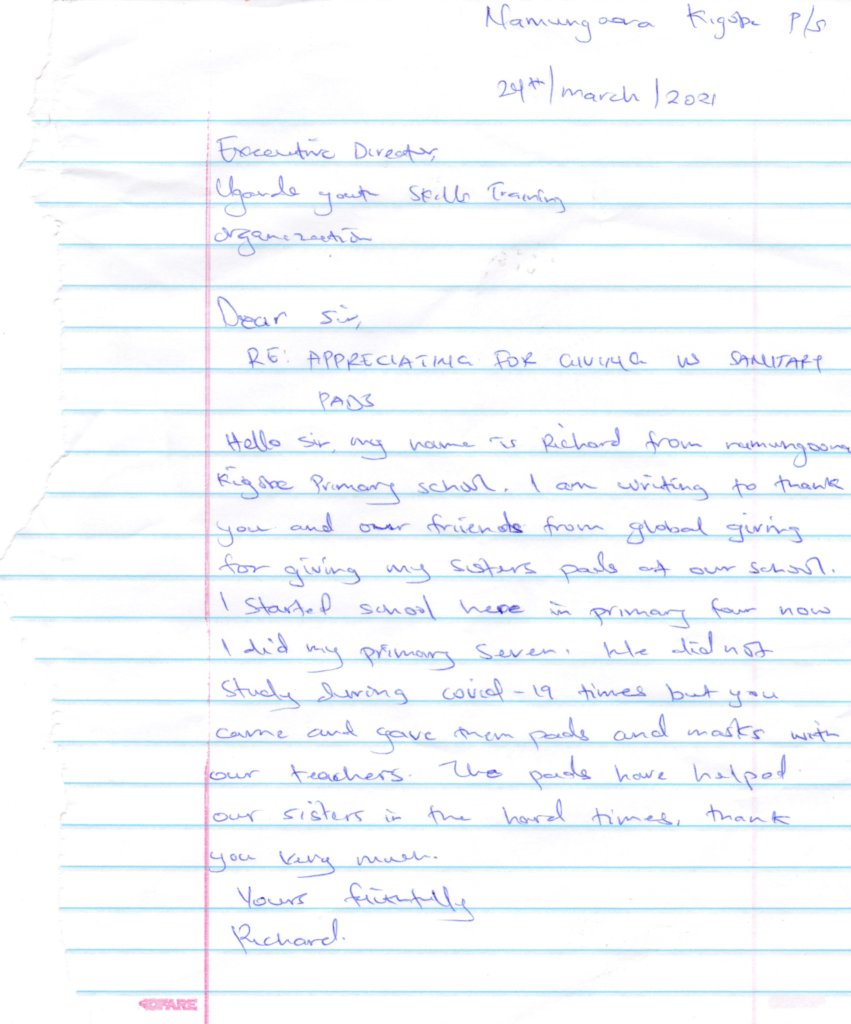 Namungoona Kigobe P/S
24th/march/2021
Executive Director,
Uganda youth skills Training
organization
Dear Sir,
RE: APPRECIATING FOR GIVING US SANITARY
PADS
Hello sir, my name is Richard from namungoona
Kigobe Primary school. I am writing to thank
you and our friends from global giving
for giving my sisters pads at our school.
I started school here in primary four now
I did my primary seven. We did not
study during covid-19 times but you
came and gave them pads and masks with
our teachers. The pads have helped
our sisters in the hard times, thank
you very much.
Yours faithfully
Richard.